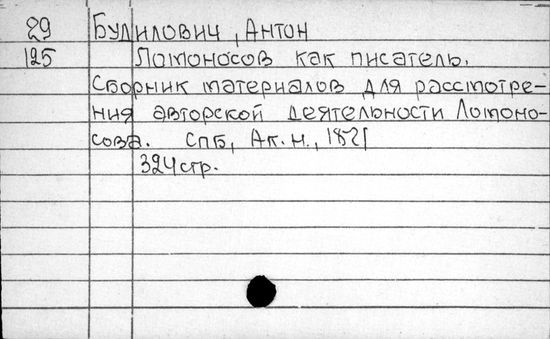 29 Будилович, Антон
125 Ломоносов как писатель.
Сборник материалов для рассмотре-
ния авторской деятельности Ломоно-
сова. СПБ, Ак. н., 1871
324 стр.